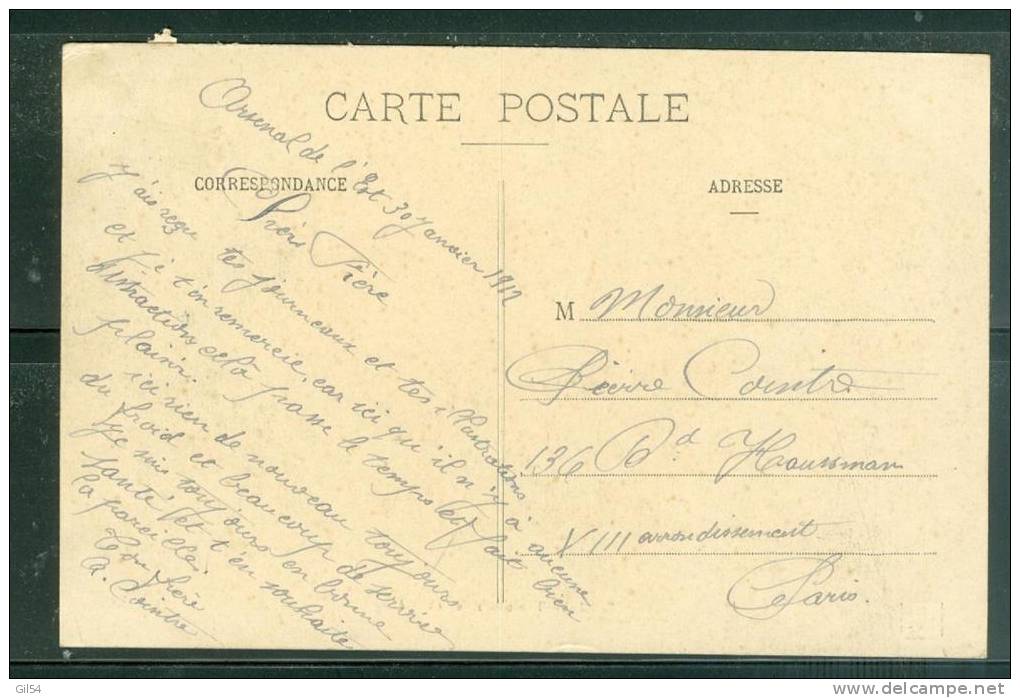 CARTE POSTALE
CORRESPONDANCE
ADRESSE
Arsenal de l'Est 30 Janvier 1912
Frère
J'ais reçu tes journeaux et tes illustrations
et je t'en remercie, car ici qu'il n'y à aucune
distractions celà passe le temps et fait bien
plaisir.
ici rien de nouveau toujours
du froid et beaucoup de service
Je suis toujours en bonne
santé, et t'en souhaite
la pareille.
Ton Frère
A. Cointre
M Monsieur
Pierre Cointre
136 Bd Haussman
VIII arrondissement
Paris.
Gil54
delcampe.net